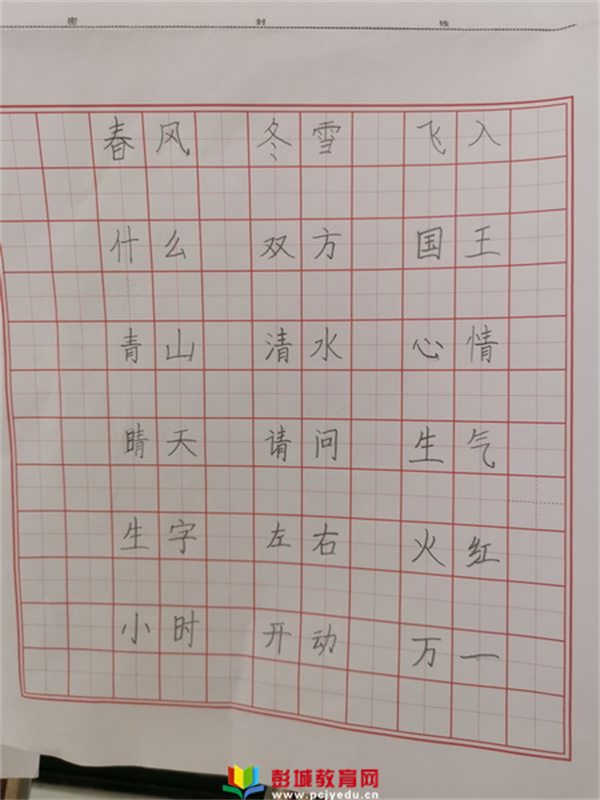 密 封 线
春风 冬雪 飞入
什么 双方 国王
青山 清水 心情
晴天 请问 生气
生字 左右 火红
小时 开动 万一
彭城教育网
www.pcjyedu.cn